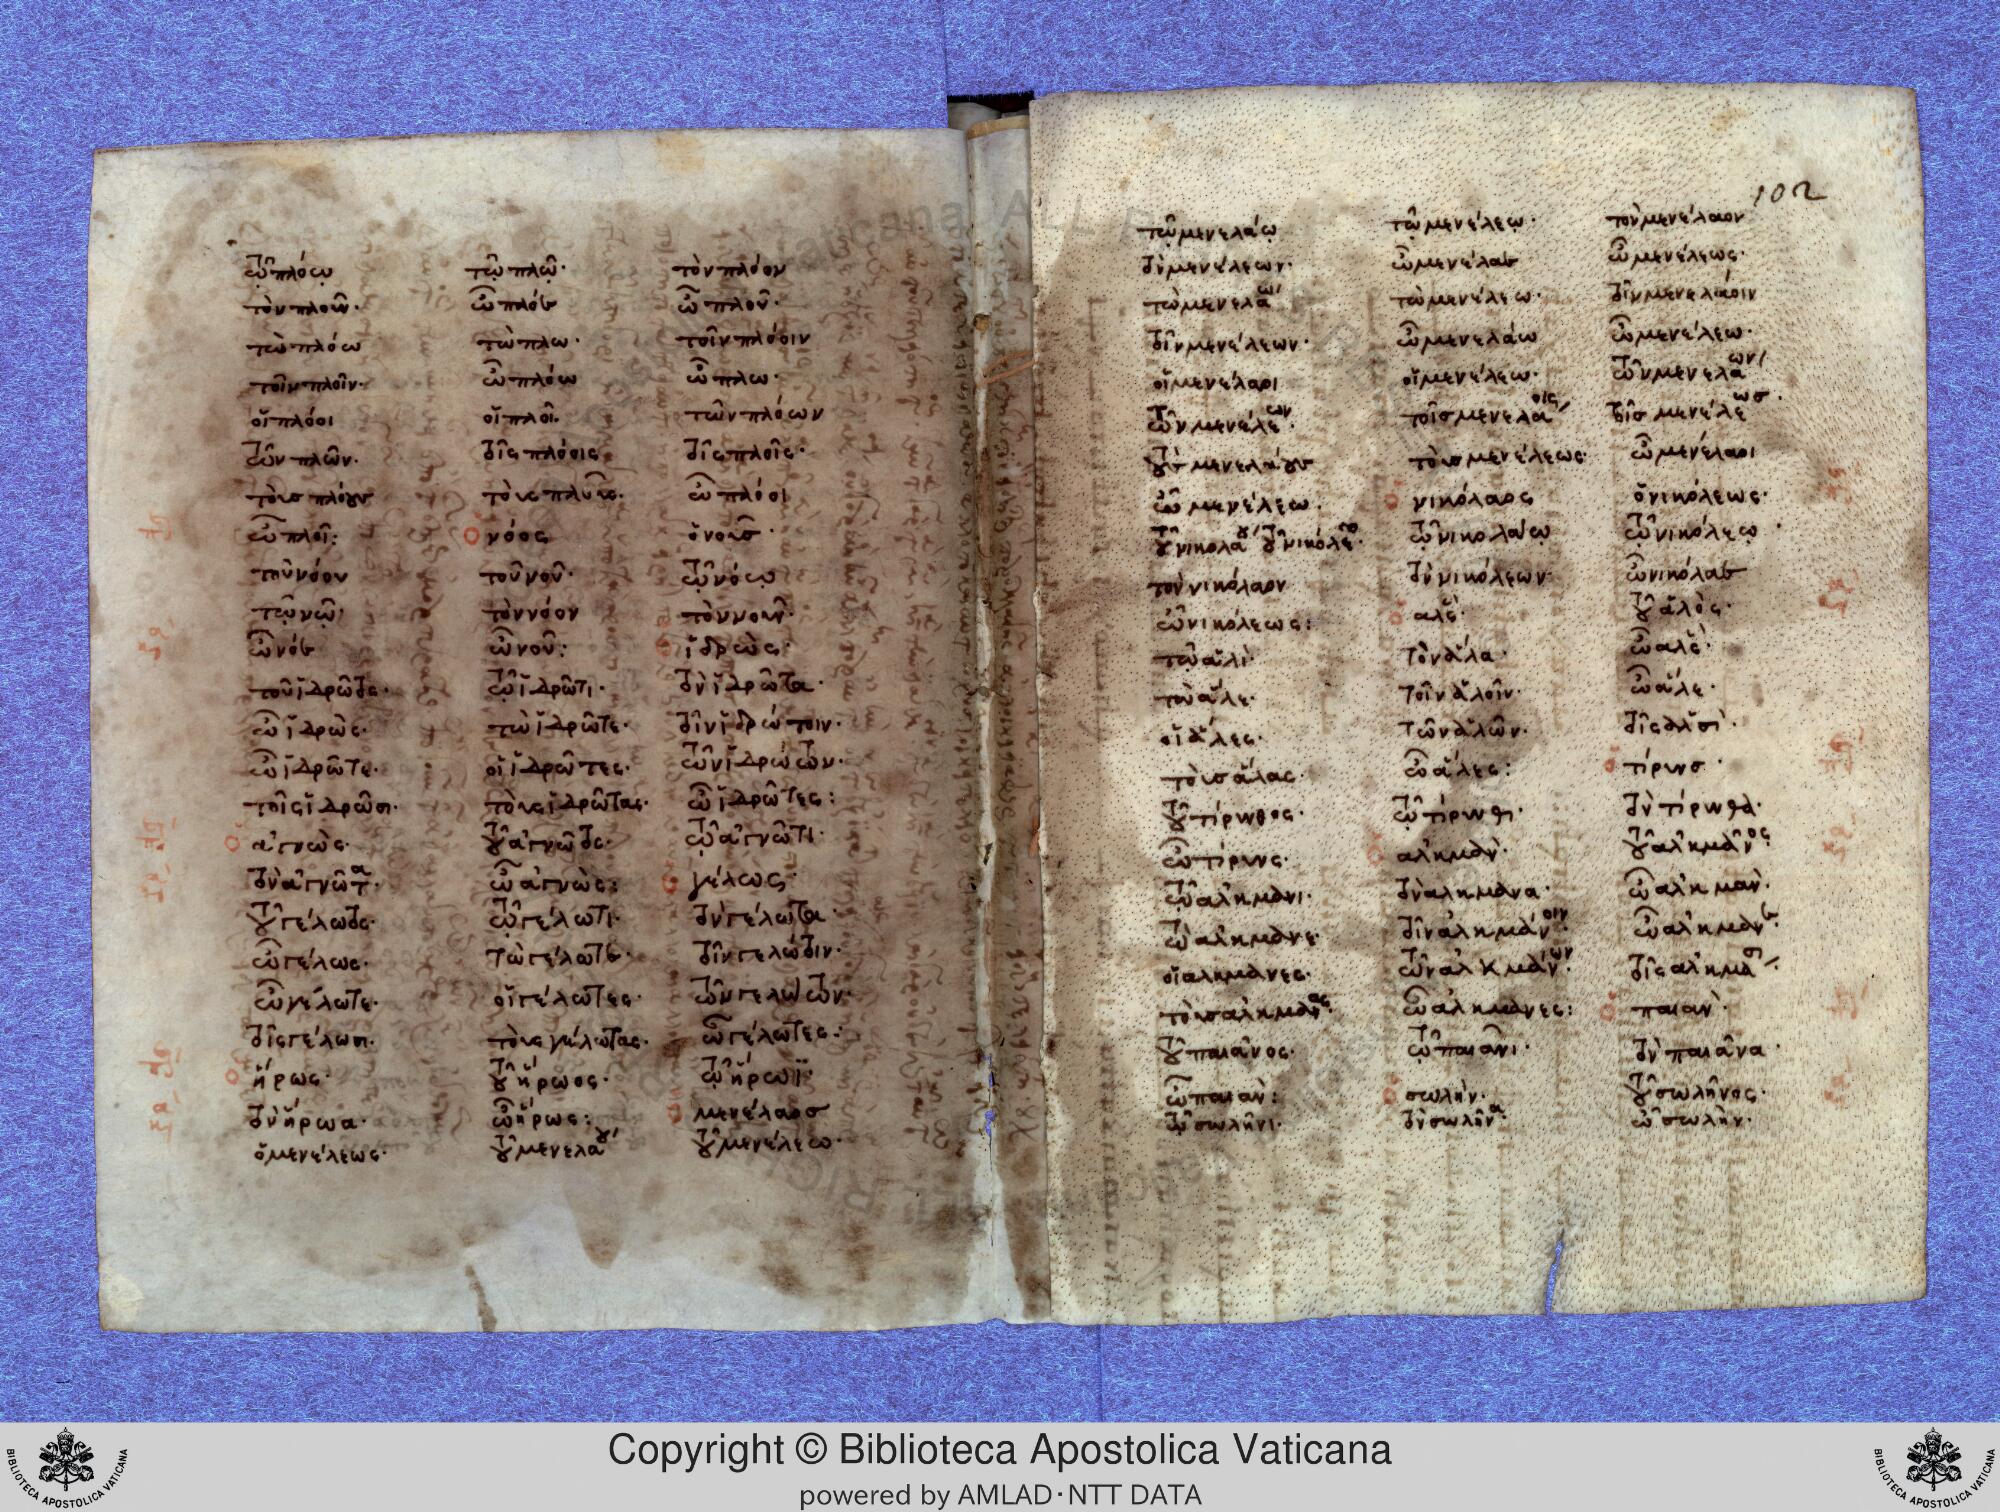 τῷ πλόῳ τῷ πλῷ· τὸν πλόον
τὸν πλοῦν· ὦ πλόε ὦ πλοῦ·
τὼ πλόω τὼ πλω· τοῖν πλόοιν
τοῖν πλοῖν· ὦ πλόω ὦ πλω·
οἱ πλόοι οἱ πλοῖ· τῶν πλόων
τῶν πλῶν· τοῖς πλόοις τοῖς πλοῖς·
τοὺς πλόους τοὺς πλοῦς· ὦ πλόοι
ὦ πλοῖ: ὁ νόος ὁ νοῦς·
τοῦ νόου τοῦ νοῦ· τῷ νόῳ
τῷ νῷ· τὸν νόον τὸν νοῦν·
ὦ νόε ὦ νοῦ: ὁ ἱδρὼς·
τοῦ ἱδρῶτος· τῷ ἱδρῶτι· τὸν ἱδρῶτα·
ὦ ἱδρὼς· τὼ ἱδρῶτε· τοῖν ἱδρώτοιν·
ὦ ἱδρῶτε· οἱ ἱδρῶτες· τῶν ἱδρώτων·
τοῖς ἱδρῶσι· τοὺς ἱδρῶτας· ὦ ἱδρῶτες:
ὁ ἀγνὼς· τοῦ ἀγνῶτος· τῷ ἀγνῶτι·
τὸν ἀγνῶτα· ὦ ἀγνὼς: ὁ γέλως·
τοῦ γέλωτος· τῷ γέλωτι· τὸν γέλωτα·
ὦ γέλως· τὼ γέλωτε· τοῖν γελώτοιν·
ὦ γέλωτε· οἱ γέλωτες· τῶν γελώτων·
τοῖς γέλωσι· τοὺς γέλωτας· ὦ γέλωτες:
ὁ ἥρως· τοῦ ἥρωος· τῷ ἥρωϊ·
τὸν ἥρωα· ὦ ἥρως: ὁ μενέλαος
ὁ μενέλεως· τοῦ μενελάου τοῦ μενέλεω·
102
τῷ μενελάῳ τῷ μενέλεῳ· τὸν μενέλαον
τὸν μενέλεων· ὦ μενέλαε ὦ μενέλεως·
τὼ μενελάω τὼ μενέλεω· τοῖν μενελάοιν
τοῖν μενέλεων· ὦ μενελάω ὦ μενέλεω·
οἱ μενέλαοι οἱ μενέλεω· τῶν μενελάων
τῶν μενέλεων· τοῖς μενελάοις τοῖς μενέλεως·
τοὺς μενελάους τοὺς μενέλεως· ὦ μενέλαοι
ὦ μενέλεω· ὁ νικόλαος ὁ νικόλεως·
τοῦ νικολάου τοῦ νικόλεω· τῷ νικολάῳ τῷ νικόλεῳ·
τὸν νικόλαον τὸν νικόλεων· ὦ νικόλαε
ὦ νικόλεως: ὁ αλς· τοῦ ἁλὸς·
τῷ ἁλὶ· τὸν ἅλα· ὦ αλς·
τὼ ἅλε· τοῖν ἁλοῖν· ὦ ἅλε·
οἱ ἅλες· τῶν ἁλῶν· τοῖς ἁλσὶ·
τοὺς ἅλας· ὦ ἅλες: ὁ τίρυνς·
τοῦ τίρυνθος· τῷ τίρυνθι· τὸν τίρυνθα·
ὦ τίρυνς· ὁ αλκμὰν· τοῦ ἀλκμᾶνος:
τῷ ἀλκμᾶνι· τὸν αλκμᾶνα· ὦ αλκμὰν·
τὼ ἀλκμᾶνε· τοῖν ἀλκμάνοιν· ὦ ἀλκμᾶνε·
οἱ αλκμᾶνες· τῶν ἀλκμάνων· τοῖς ἀλκμᾶσι·
τοὺς ἀλκμᾶνας: ὦ ἀλκμᾶνες: ὁ παιὰν·
τοῦ παιᾶνος· τῷ παιᾶνι· τὸν παιᾶνα·
ὦ παιὰν: ὁ σωλὴν· τοῦ σωλῆνος·
τῷ σωλῆνι· τὸν σωλῆνα· ὦ σωλὴν·
Copyright © Biblioteca Apostolica Vaticana
powered by AMLAD·NTT DATA
BIBLIOTECA APOSTOLICA VATICANA
BIBLIOTECA APOSTOLICA VATICANA